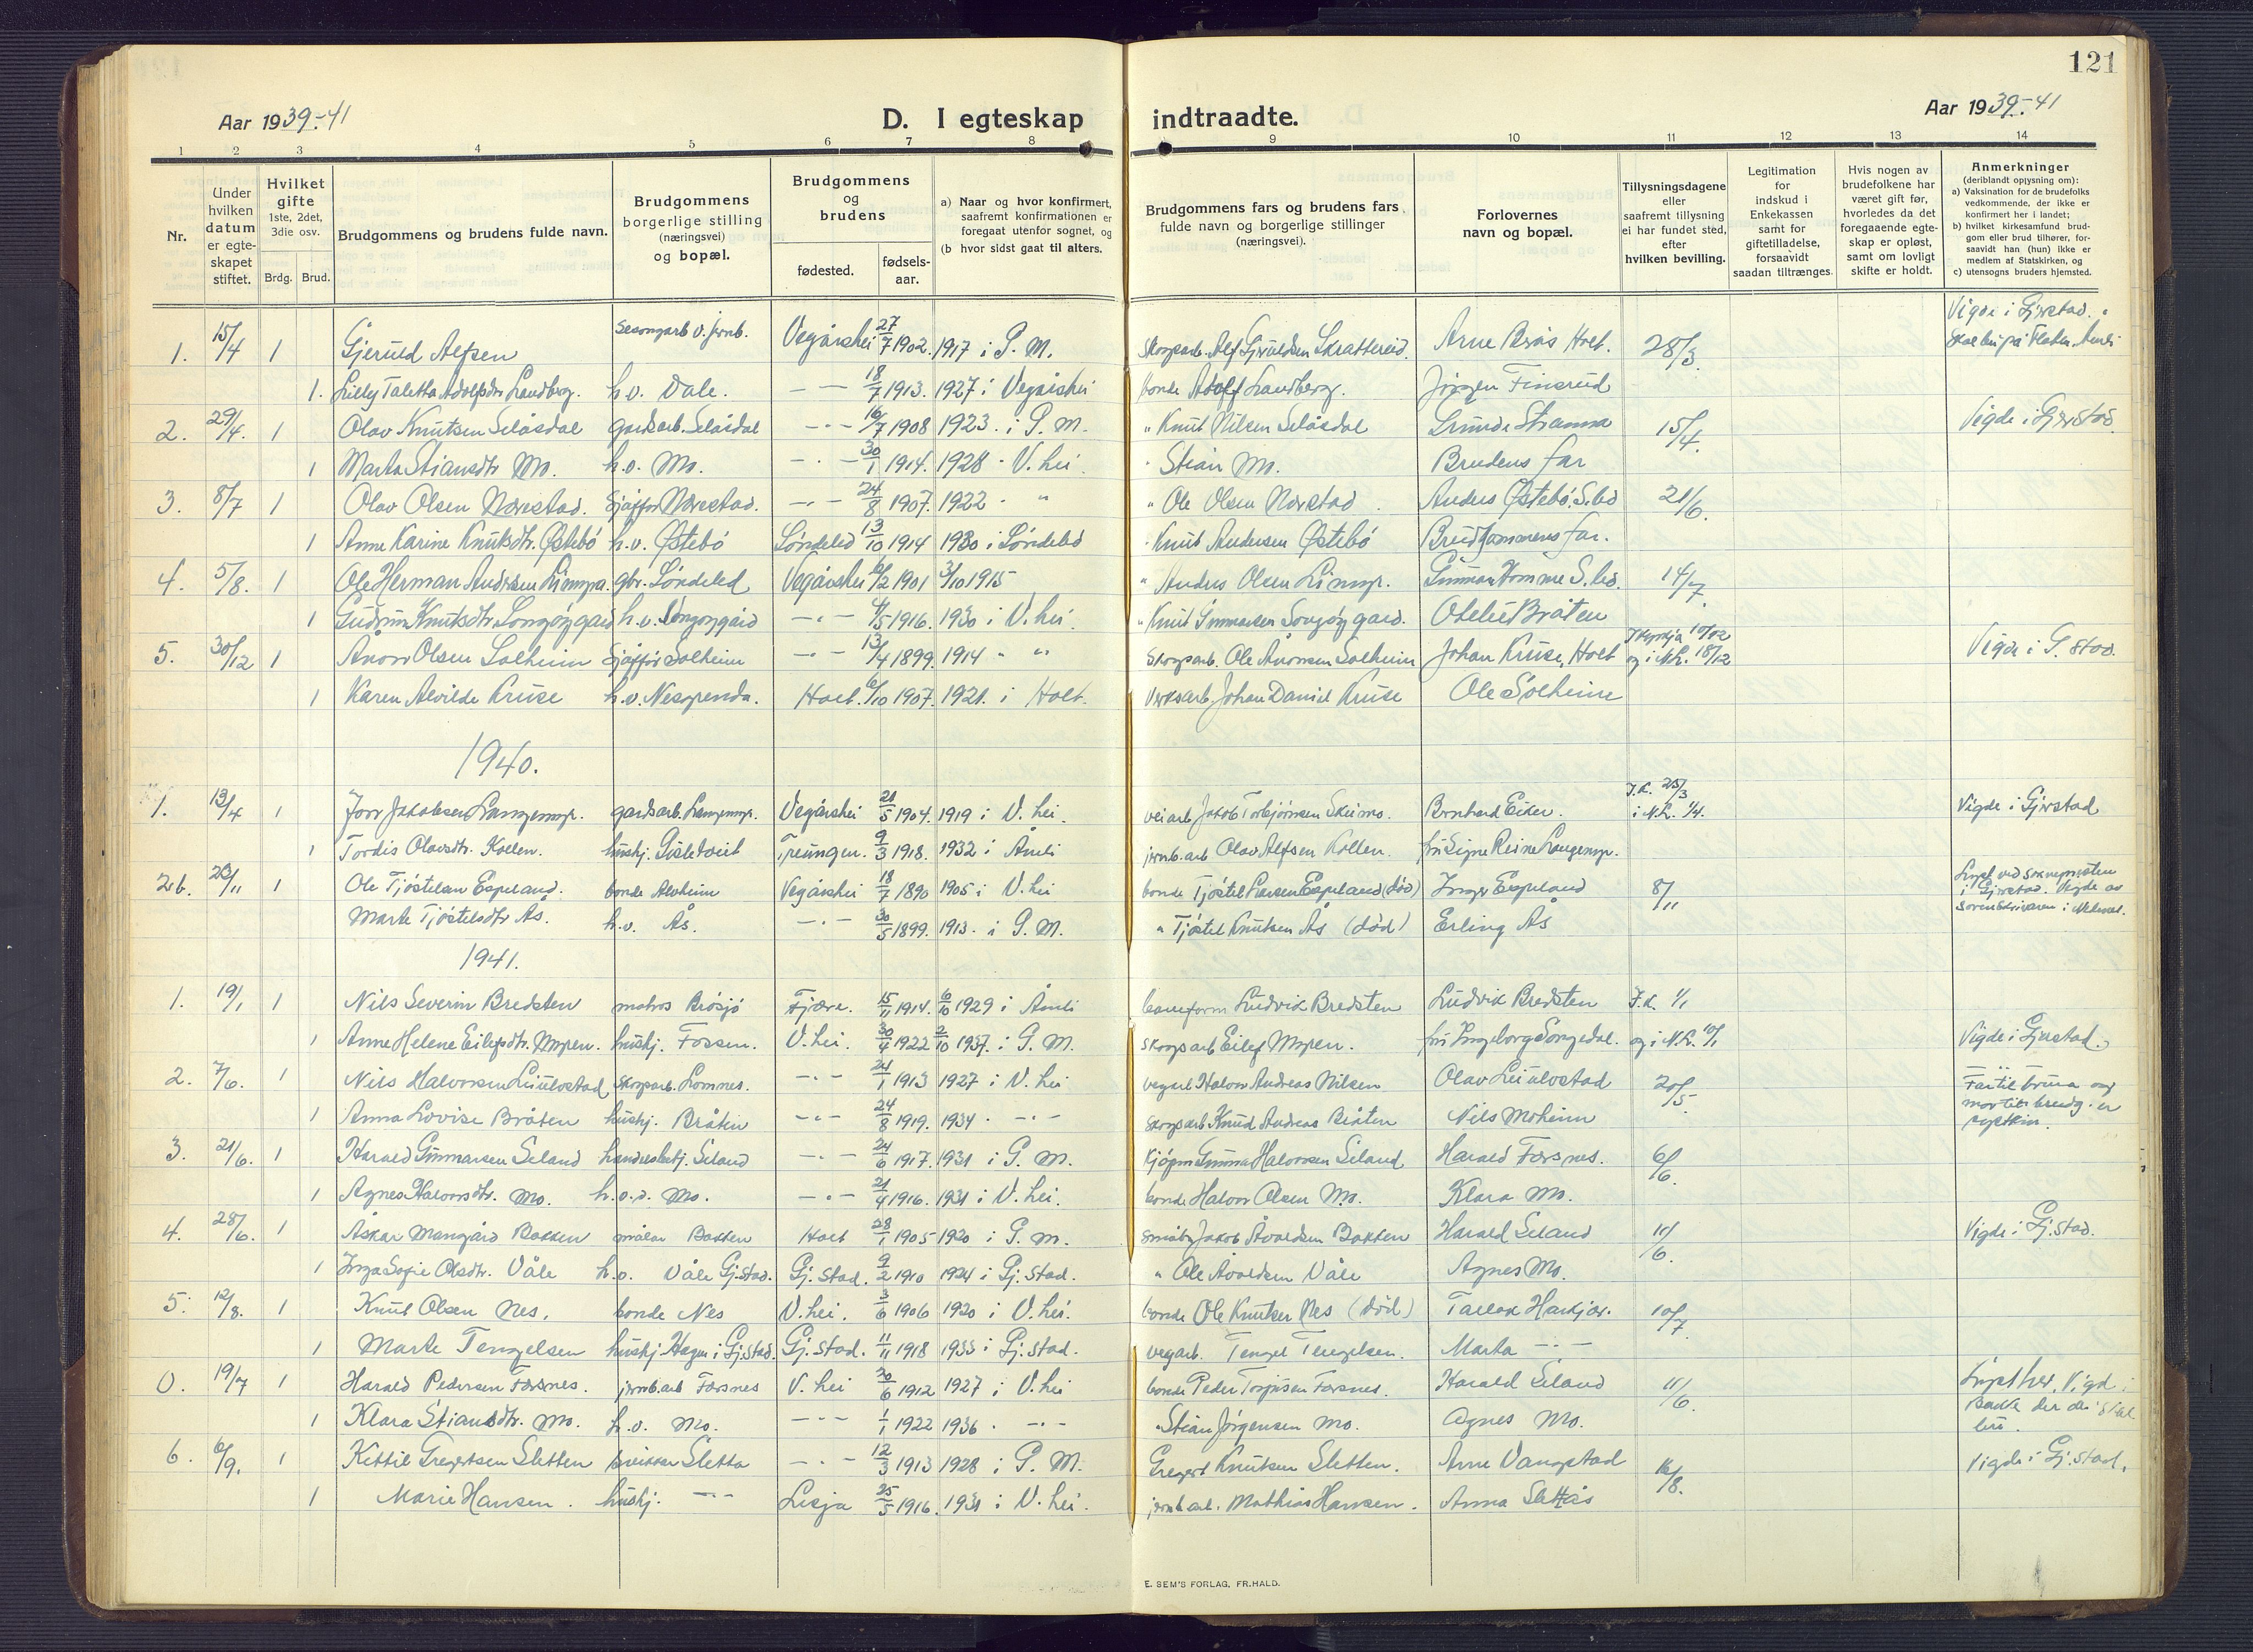 121
Aar 1939.-41
D. I egteskap indtraadte.
Aar 1939.-41
1 2 3 4 5 6 7 8 9 10 11 12 13 14
Nr.
Under hvilken datum er egte-skapet stiftet.
Hvilket gifte 1ste, 2det, 3die osv.
Brdg. Brud.
Brudgommens og brudens fulde navn.
Brudgommens borgerlige stilling (næringsvei) og bopæl.
Brudgommens og brudens
fødested. fødsels-aar.
a) Naar og hvor konfirmert, saafremt konfirmationen er foregaat utenfor sognet, og
(b hvor sidst gaat til alters.
Brudgommens fars og brudens fars fulde navn og borgerlige stillinger (næringsvei).
Forlovernes navn og bopæl.
Tillysningsdagene eller saafremt tillysning ei har fundet sted, efter hvilken bevilling.
Legitimation for indskud i Enkekassen samt for giftetilladelse, forsaavidt saadan tiltrænges.
Hvis nogen av brudefolkene har været gift før, hvorledes da det foregaaende egte-skap er opløst, samt om lovligt skifte er holdt.
Anmerkninger
(deriblandt opjysning om):
a) Vaksination for de brudefolks vedkommende, der ikke er konfirmert her i landet;
b) hvilket kirkesamfund brud-gom eller brud tilhører, for-saavidt han (hun) ikke er medlem af Statskirken, og
c) utensogns bruders hjemsted.
1. 15/4 1 Gjeruld Alfsen sesongarb v. jernb. Vegårshei 27/7 1902. 1917 i G. M. skogsarb. Alf Gjeruldsen Skrattereid. Arne Brås Holt. 28/3. Vigde i Gjerstad.
1. Lilly Taletta Adolfsdtr Landberg. h.v. Dale. -·- 18/7 1913. 1927 i Vegårshei bonde Adolf Landberg. Jørgen Finsrud
2. 29/4. 1 Olav Knutsen Selåsdal gardsarb. Selåsdal -·- 16/7 1908 1923. i G. M. " Knut Nilsen Selåsdal Gunde Stranna 15/4. Vigde i Gjerstad.
1 Marta Stiansdtr Mo. h.v. Mo. -·- 30/1 1914. 1928 - V.hei. " Stian Mo. Brudens far
3. 8/7 1 Olav Olsen Nærestad. Sjåffør Nærestad. -·- 24/8 1907. 1922 - " " Ole Olsen Nærestad Anders Østebø, S.led 21/6.
1 Anne Karine Knutsdtr. Østebø h.v. Østebø Søndeled 13/10 1914 1930 i Søndeled " Knut Andersen Østebø Brudgommens far.
4. 5/8. 1 Ole Herman Andersen Limyr. gbr. Søndeled Vegårshei 6/2 1901 3/10 1915 " Anders Olsen Limyr. Gunnar Homme S.led. 14/7.
1 Gudrun Knutsdtr Songøygard h.v. Songøygard -·- 4/5 1916. 1930 i V.hei. " Knut Gunnarsen Songøygard. Obelie Bråten
5. 30/12 1 Ånon Olsen Solheim Sjåffør Solheim -·- 13/4 1899. 1914 " " Skogsarb. Ole Ånonsen Solheim Johan Kruse, Holt 10/12 og i N.K. 18/12 Vigde i G.stad.
1 Karen Alvilde Kruse h.v. Nesgrenda. Holt. 6/10 1907. 1921. i Holt. Verksarb. Johan Daniel Kruse Ole Solheim
1940.
1. 13/4 1 Jon Jakobsen Langemyr. gardsarb. Langemyr. Vegårshei 21/5 1904. 1919 i V.hei. veiarb. Jakob Torbjørnsen Skeimo. Bernhard Eiker. F.K. 25/3 i N.K. 1/4. Vigde i Gjerstad
1 Tordis Olavsdtr. Kollen. hushj. Gisletveit Treungen. 9/3 1918. 1932 i Åmli jernb.arb Olav Alfsen Kollen. fru Signe Reine Langemyr.
2b. 23/11 1 Ole Tjøstelsen Espeland. bonde Alvheim Vegårshei 18/7 1890 1905 i V.hei bonde Tjøstel Larsen Espeland (død) Inger Espeland 8/11 Lyst ved soknepresten i Gjerstad. Vigde av sorenskrivaren i Nedenes.
Marte Tjøstelsdtr Ås. h.v. Ås. -·- 30/5 1899. 1913. i G.M. " Tjøstel Knutsen Ås (død) Erling Ås
1941.
1. 19/1 1 Nils Severin Bredsten matros Brøsjø Fjære. 15/11 1914. 6/10 1929 i Åmli baneform Ludvik Bredsten Ludvik Bredsten F.K. 1/1
1 Anne Helene Eilefsdtr. Myren. hushj. Fossen. V.hei. 30/4 1922 2/10 1937. i G.M. Skogsarb Eilef Myren. fru Ingeborg Songedal. og i N.K. 10/1 Vigde i Gjerstad.
2. 7/6. 1 Nils Halvorsen Leiulvstad Skogsarb. Lomnes. -·- 21/1 1913 1927 i V.hei vegarb Halvor Andreas Nilsen Olav Leiulvstad 20/5. Far til brura og mor til brudg. er syskin.
1 Anna Lovise Bråten hushj. Bråten -·- 24/8 1919. 1934 - -·- skogsarb Knud Andreas Bråten Nils Moheim
3. 21/6. 1 Harald Gunnarsen Seland handelsbetj. Seland -·- 24/6 1917. 1931 i G.M. Kjøpm Gunnar Halvorsen Seland Harald Forsnes. 6/6.
1 Agnes Halvorsdtr. Mo. h.v.d. Mo. -·- 21/4 1916. 1931 i V.hei. bonde Halvor Olsen Mo. Klara Mo.
4. 28/6. 1 Åskar Mangård Bakken målar Bakken Holt 28/1 1905 1920 i G.M. småbr Jakob Åvaldsen Bakken Harald Seland 11/6. Vigde i Gj.stad.
1 Inga Sofie Olsdtr. Våle h.v. Våle Gj.stad. Gj.stad. 9/2 1910 1924 i Gj.stad. " Ole Åvaldsen Våle Agnes Mo.
5. 12/8. 1 Knut Olsen Nes. bonde Nes V.hei. 3/6 1906 1920 i V.hei. bonde Ole Knutsen Nes (død) Tarlak 10/7.
1 Marte Tengelsen hushj. Hagen i Gj.stad. Gj.stad. 11/11 1918 1933 i Gj.stad. vegarb. Tengel Tengelsen. Marta -·-
0. 19/7 1 Harald Pedersen Forsnes. jernb.arb Forsnes V.hei 30/6 1912 1927 i V.hei bonde Peder Torjusen Forsnes. Harald Seland 11/6. Lyst her. Vigd i
1 Klara Stiansdtr. Mo. h.v. Mo. -·- 1/1 1922 1936. -·- " Stian Jørgensen Mo. Agnes Mo.
6. 6/9. 1 Kittil Gregersen Sletten Sletta -·- 12/3 1913 1928 i G.M. Gregert Knutsen Sletten. Arne Vangstad 16/8. Vigde i Gj.stad.
1 Marie Hansen. hushj. -·- Lesja 25/5 1916. 1931 i V.hei. jernb.arb. Mathias Hansen. Anna Slettås
E. SEM'S FORLAG, FR.HALD.